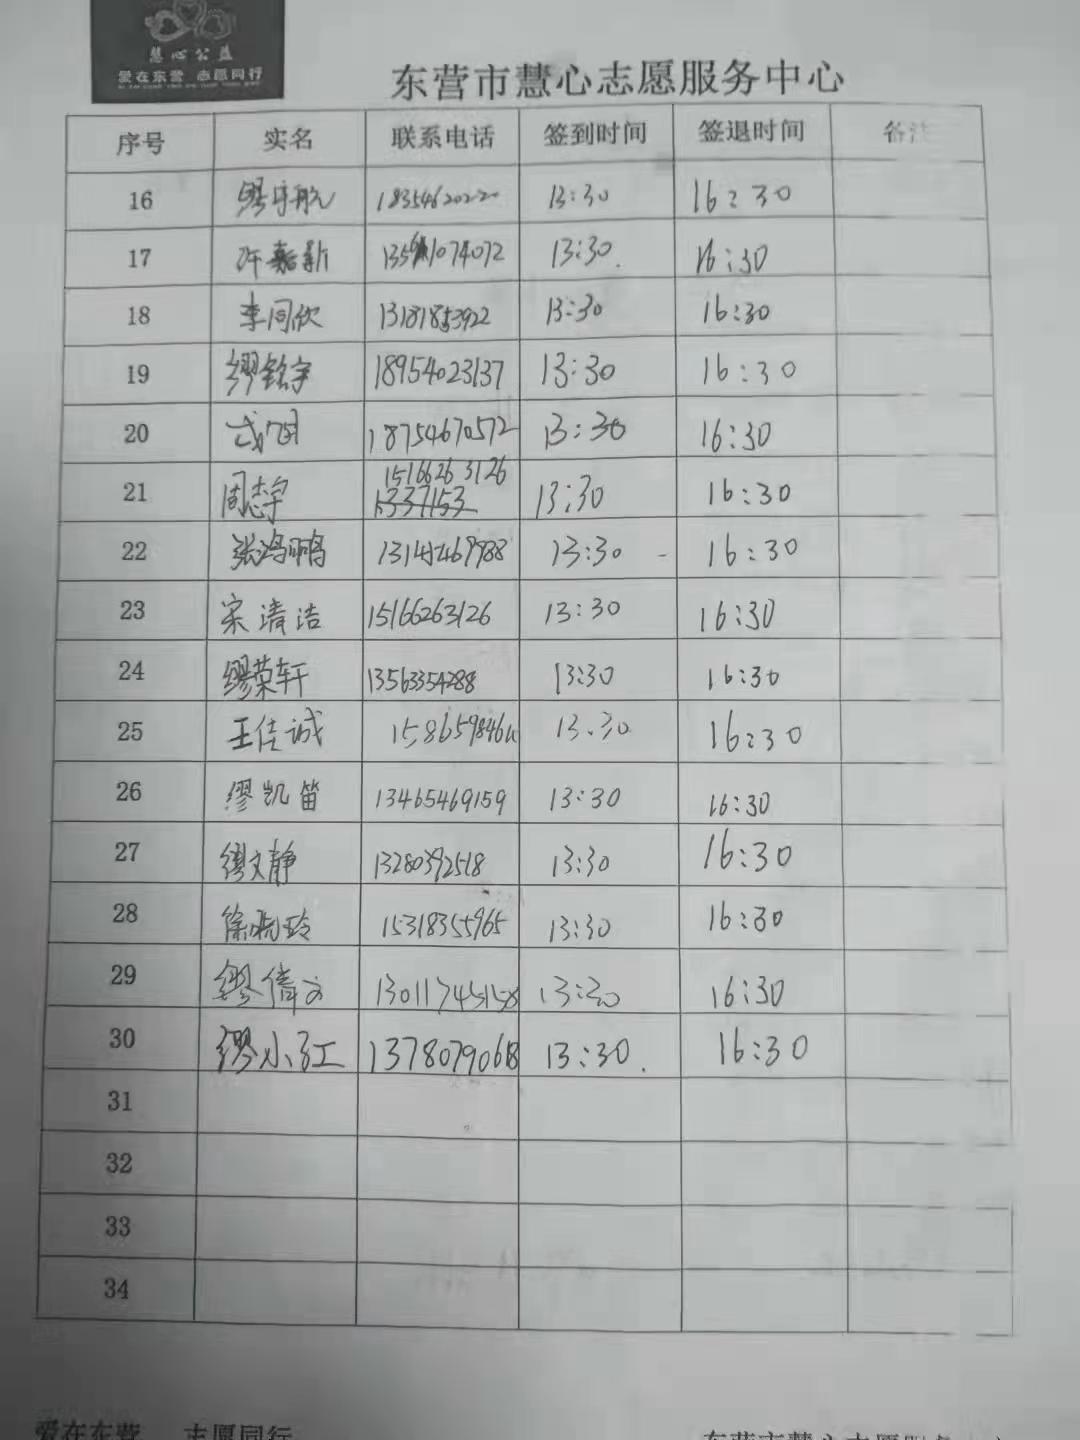 慧心公益
爱在东营 志愿同行
东营市慧心志愿服务中心
序号 实名 联系电话 签到时间 签退时间 备注
16 13:30 16:30
17 许嘉新 13:30. 16:30
18 李同欣 13181853922 13:30 16:30
19 缪铭宇 18954023137 13:30 16:30
20 18754670572 13:30 16:30
21 周志宇 15166263126 13:30 16:30
1337153
22 张鸿鹏 13:30 16:30
23 宋清洁 15166263126 13:30 16:30
24 缪荣轩 13563354288 13:30 16:30
25 王佳诚 13:30 16:30
26 缪凯笛 13465469159 13:30 16:30
27 缪文静 13280392518 13:30 16:30
28 徐晓玲 15318355965 13:30 16:30
29 缪倩文 13011745158 13:30 16:30
30 缪小红 13780790618 13:30. 16:30
31
32
33
34
爱在东营 志愿同行
东营市慧心志愿服务中心